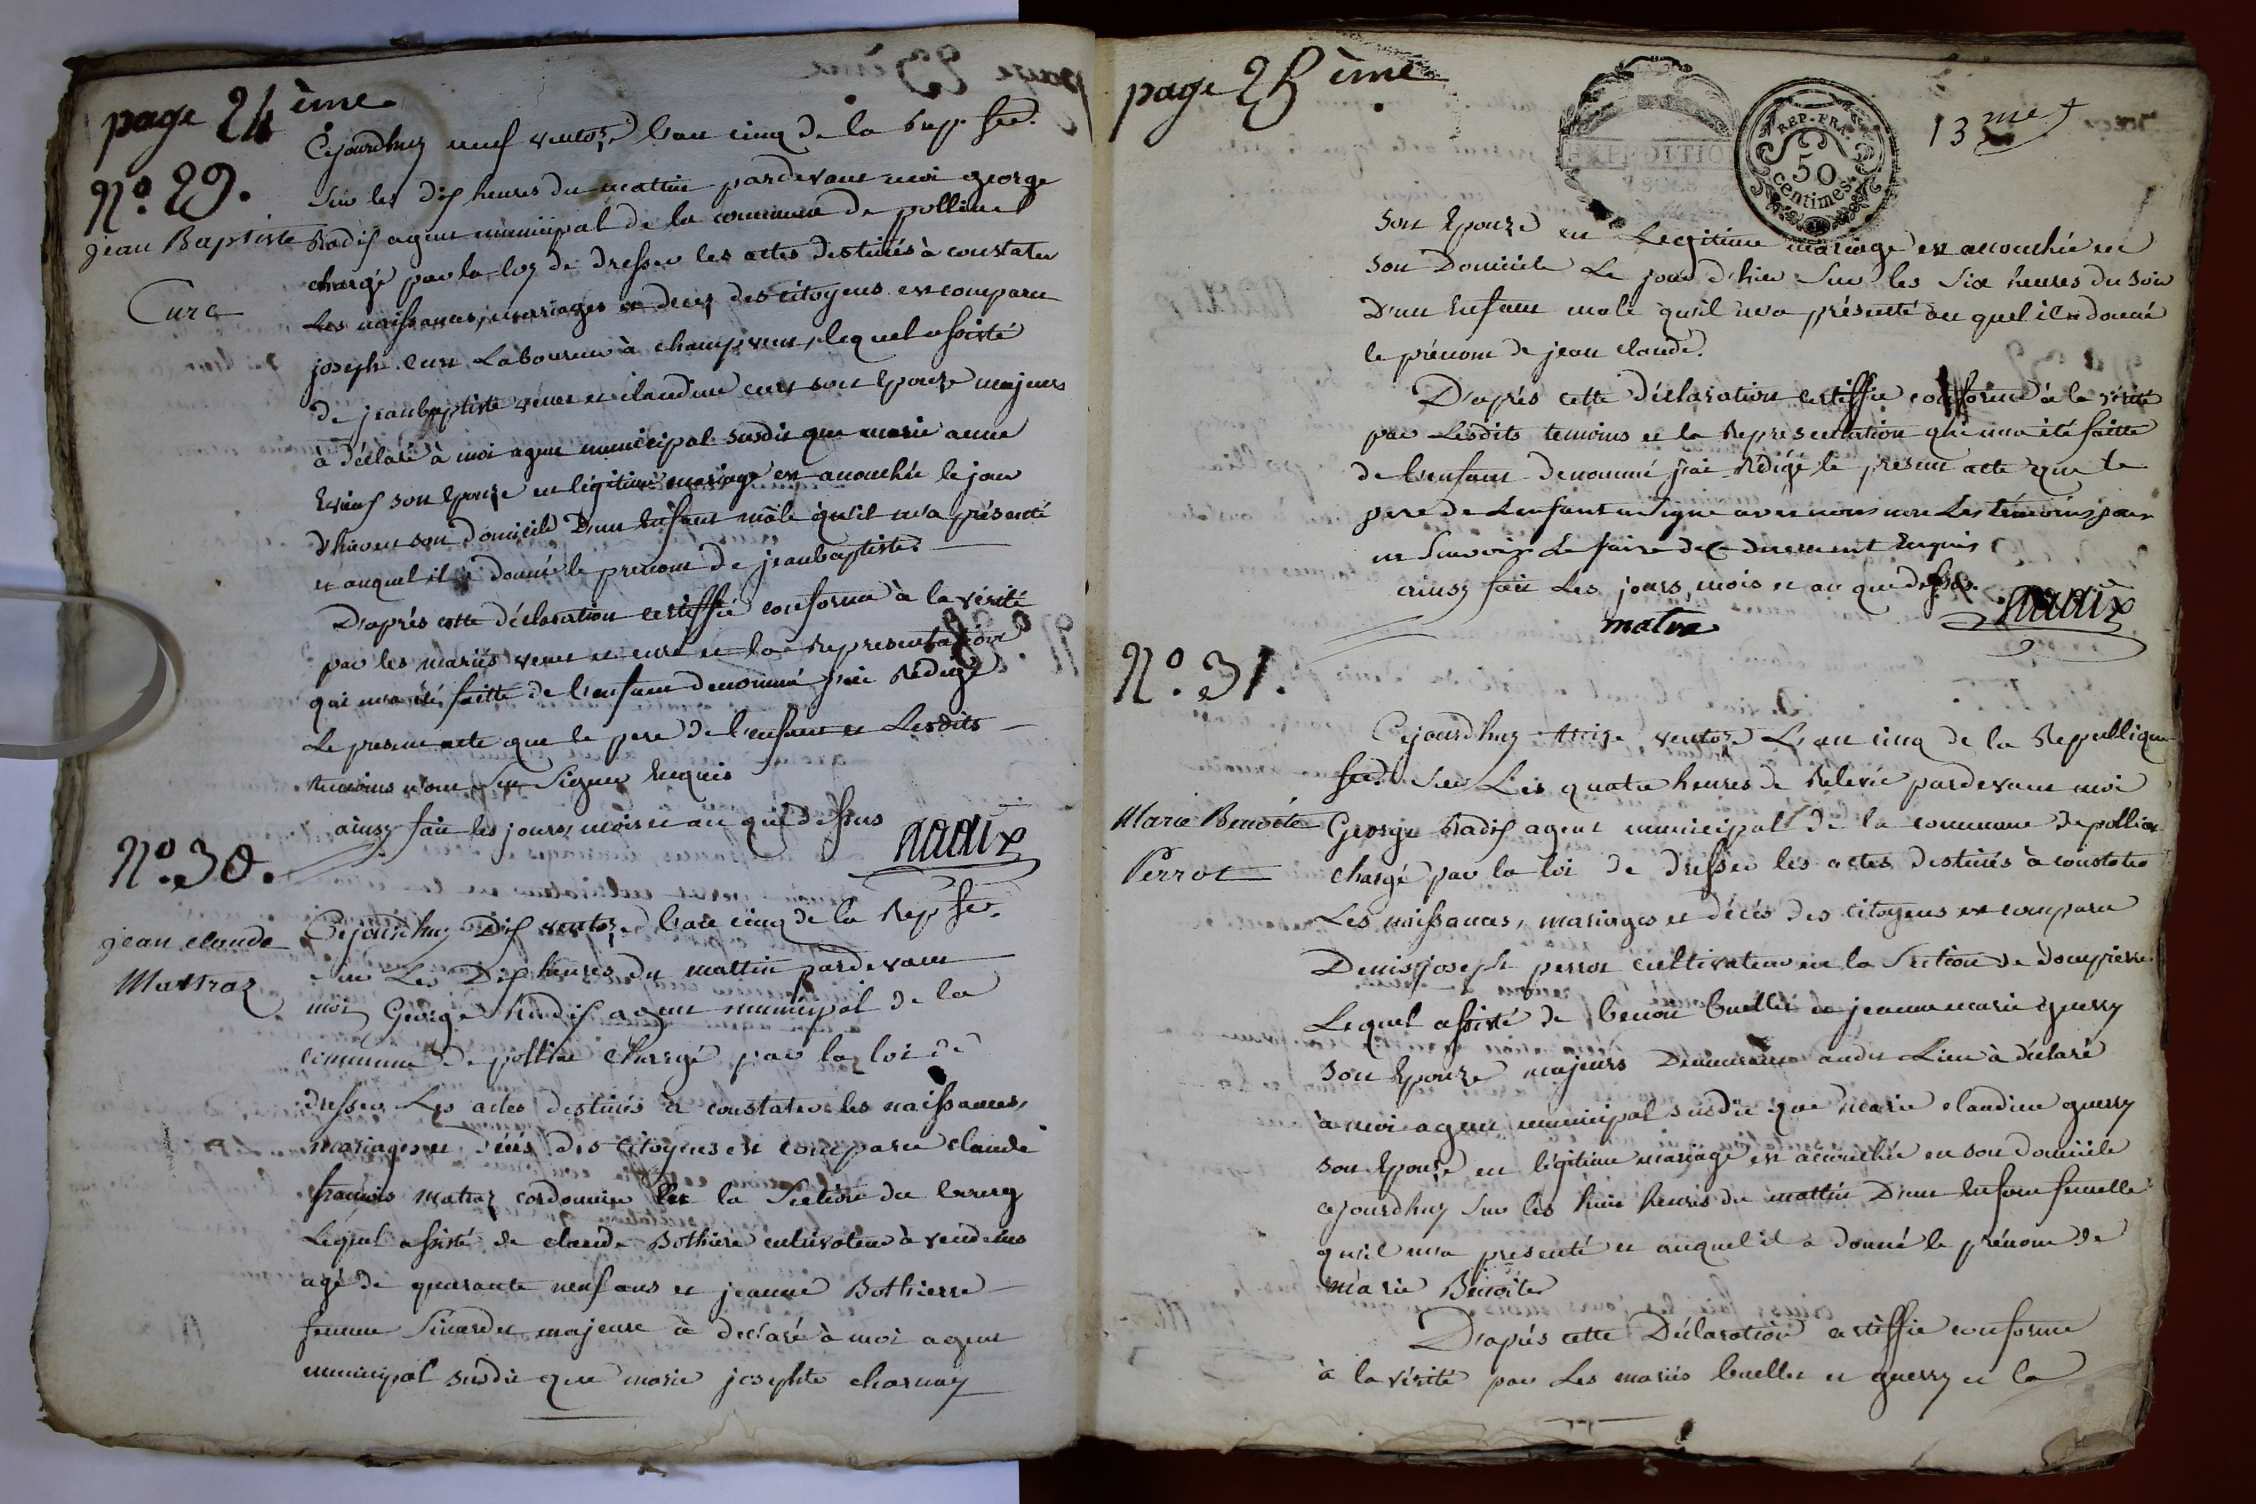 page 24 ème
Cejourdhuy neuf ventoze l'an cinq de la Repp. fse.
N.º 29.
sur les dix heures du mattin pardevant moi george
jean Baptiste
Radix agent municipal de la commune de polliat
chargé par la loy de dresser les actes destinés à constater
Curt
Les naissances, mariages et decez des citoyens est comparu
joseph Curt Laboureur à champvent, lequel assisté
de jeanbaptiste venet et claudine curt son Epouze majeurs
a déclaré à moi agent municipal susdit que marie anne
son Epouze en légitime mariage est accouchée le jour
d'hier en son domicile D'un Enfant mâle qu'il m'a présenté
et auquel il a donné le prenom de jeanbaptiste.
D'après cette déclaration certiffié conforme à la vérité
par les mariés venet et curt et la Representation
qui m'a été faitte de l'enfant denommé j'ai Rédigé
Le present acte que le pere de l'enfant et Lesdits
temoins n'ont Su Signer Enquis
ainsy fait les jours, mois et an que dessus
Radix
N.º 30.
jean claude
Cejourdhuy Dix ventoze l'an cinq de la Rep fse.
Mattraz
sur Les Dix heures du mattin pardevant
moi George Radix agent municipal de la
commune de polliat chargé par la loi de
dresser Les actes destinés à constater les naissances,
mariages et décés des citoyens est comparu claude
françois matraz cordonnier sur la Section du bourg
Lequel assisté de claude Bothiere cultivateur à vendeins
agé de quarante neuf ans et jeanne Bothierre
femme majeure a declaré à moi agent
municipal susdit que marie josephte charnay
page 25 ème
13 me
REP. FRA.
50
centimes.
son Epouze en Legitime mariage est accouchée en
son Domicile Le jour d'hier Sur les Six heures du soir
D'un Enfant male qu'il m'a présenté au quel il a donné
le prénom de jean claude.
D'après cette déclaration certiffié conforme à la vérité
par Lesdits temoins et la Representation qui m'a été faitte
de l'enfant denommé j'ai Rédigé le present acte que le
pere de L'enfant a Signé avec nous non Les témoins pour
ne Scavoir Le faire de ce duement Enquis
ainsy fait Les jours, mois et an que dessus.
matra
Radix
N.º 31.
Cejourdhuy treize ventoze L'an cinq de la Republique
fse. Sur Les quatre heures de Relevée pardevant moi
Marie Benoîte
George Radix agent municipal de la commune de polliat
Perrot
chargé par la loi de dresser les actes destinés à constater
Les naissances, mariages et décés des citoyens est comparu
Denis joseph perrot cultivateur en la Section de dompierre
Lequel assisté de benoit buellet et jeanne marie guerry
son Epouze majeurs Demeurants audit Lieu à déclaré
à moi agent municipal susdit que marie claudine guerry
son Epouze en légitime mariage est accouchée en son domicile
cejourdhuy sur les huit heures du mattin D'un Enfant femelle
qu'il m'a presenté et auquel il a donné le prénom de
Marie Benoite
D'après cette Déclaration certiffié conforme
à la vérité par Les mariés buellet et guerry et la